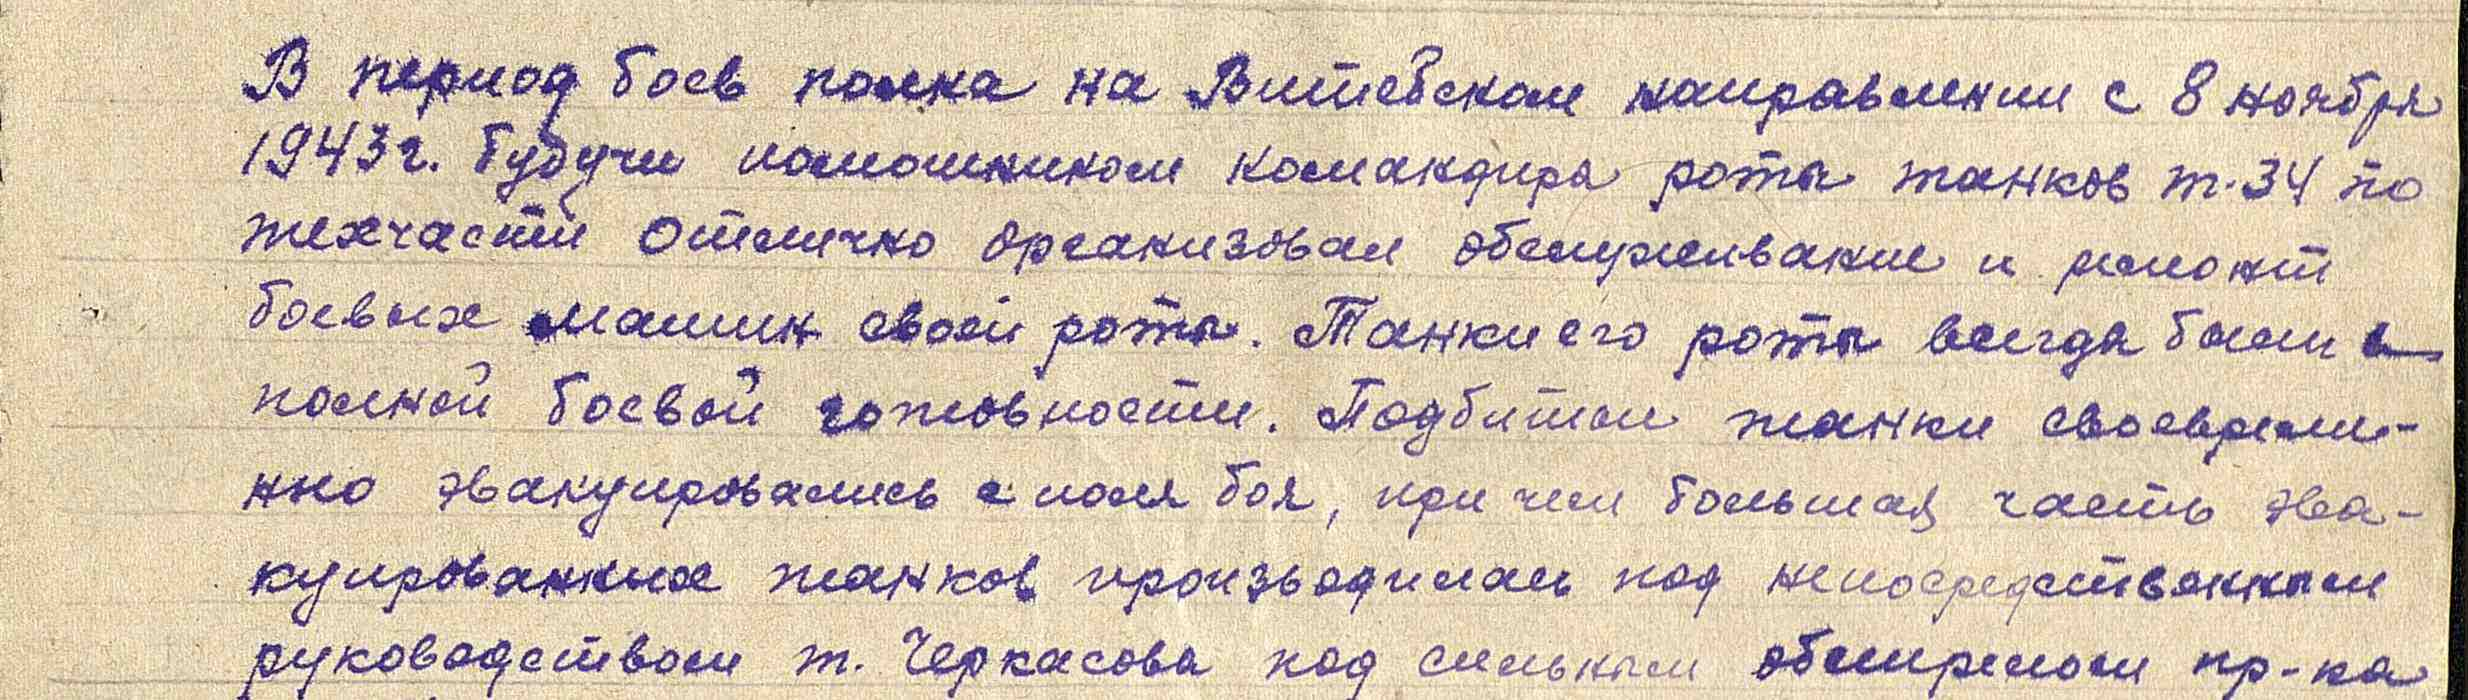 В период боев полка на Витебском направлении с 8 ноября
1943г. будучи помошником командира роты танков т-34 по
техчасти отлично организовал обслуживание и ремонт
боевых машин своей роты. Танки его роты всегда были в
полной боевой готовности. Подбитые танки своевреме-
нно эвакуировались с поля боя, при чем большая часть эва-
куированных танков производилась под непосредственным
руководством т. Черкасова под сильным обстрелом пр-ка